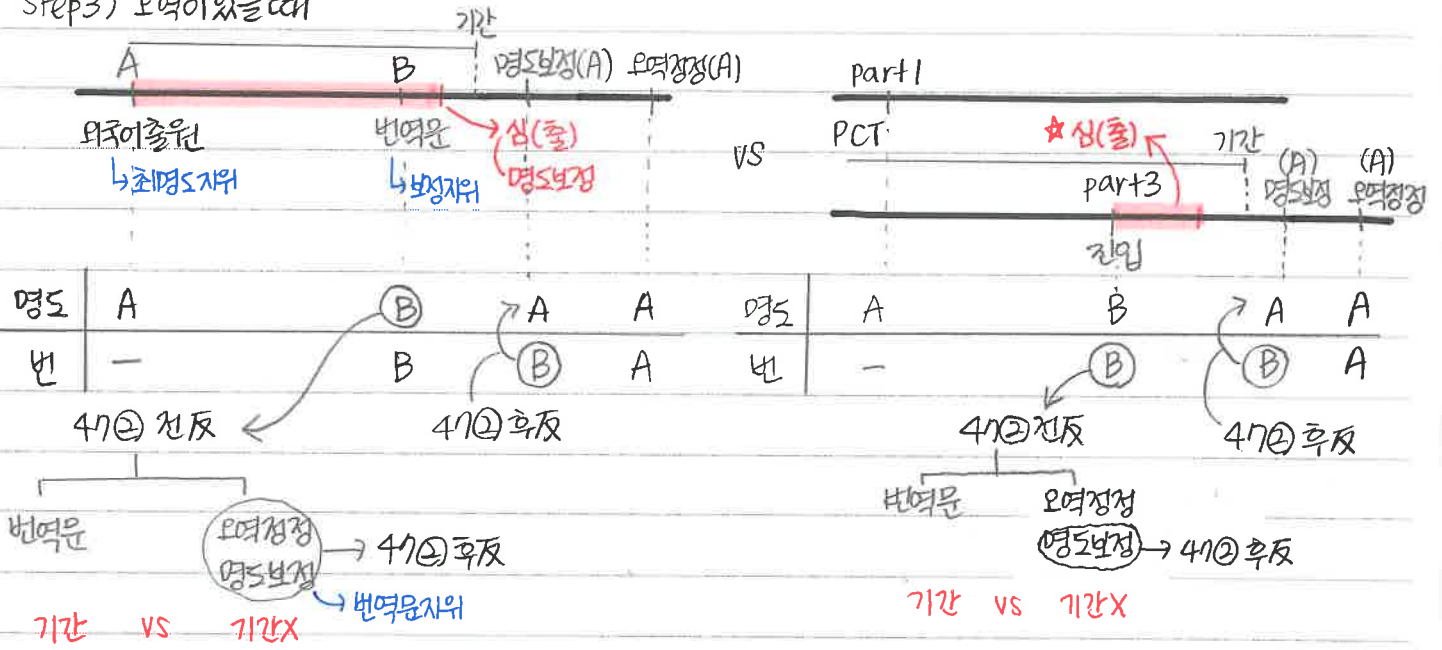 Step3) 오역이 있을 때
기간
A B 명도보정(A) 오역정정(A)
외국어출원 번역문 심(출)
↳최명도지위 ↳보정지위 명도보정
VS
part1
PCT ☆심(출) 기간 (A) (A)
part3 명도보정 오역정정
진입
명도 A B A A
번 — B B A
47② 전反 47② 후反
번역문 오역정정
명도보정 → 47② 후反
번역문지위
기간 VS 기간X
명도 A B A A
번 — B B A
47② 전反 47② 후反
번역문 오역정정
명도보정 → 47② 후反
기간 VS 기간X